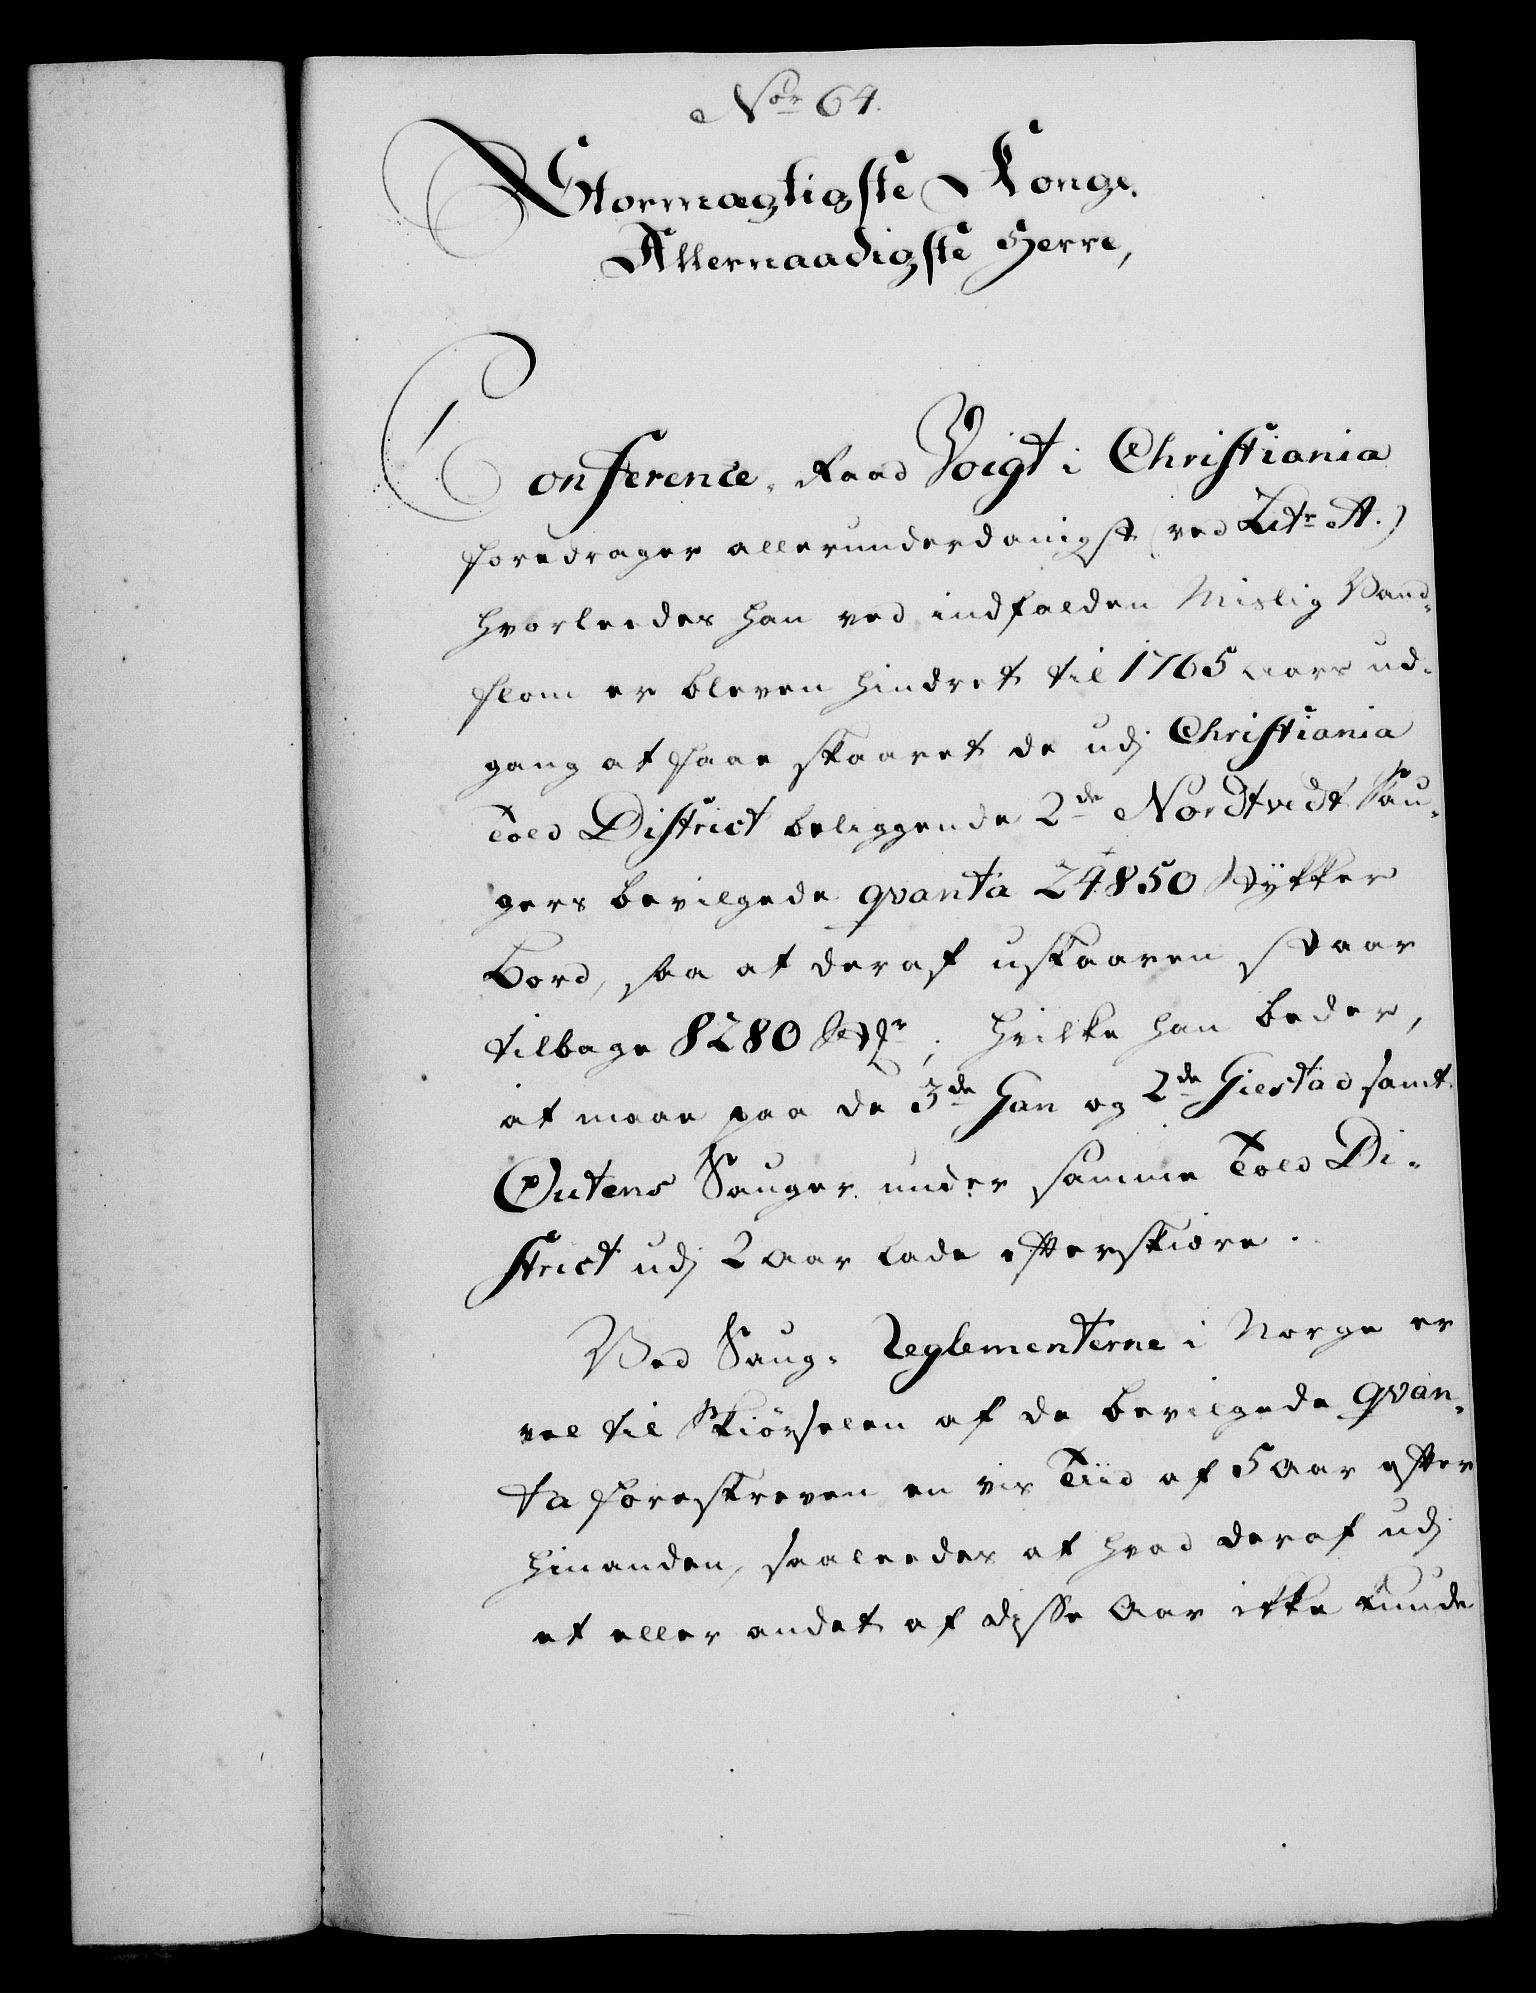 Nor 64.
Stormægtigste Konge.
Allernaadigste Herre,
Conference-Raad Voigt i Christiania
foredrager allerunderdanigst (ved Litr A.)
hvorleedes han ved indfalden Mislig Vand-
flom er bleven hindret til 1765 Aars ud-
gang at faae skaaret de udj Christiania
Told District beliggende 2de Nordtvedt Sau-
gers bevilgede qvanta 24850 Stykker
Bord, saa at deraf uskaaren staar
tilbage 8280 Stkr; hvilke han beder,
at maae paa de 3de Han og 2de Giestad samt
Outens Sauger under samme Told Di-
strict udj 2 Aar lade efterskiøre.
Ved Saug-Reglementerne i Norge er
vel til Skiørselen af de bevilgede qvan-
ta foreskreven en vis Tiid af 5 Aar efter
hinanden, saaleedes at hvad deraf udj
et eller andet af disse Aar ikke kunde